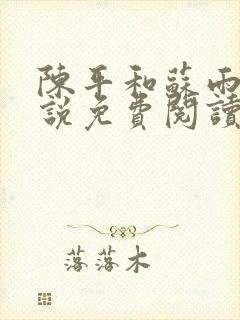 陳平和蘇雨
說免費閱讀
落落木